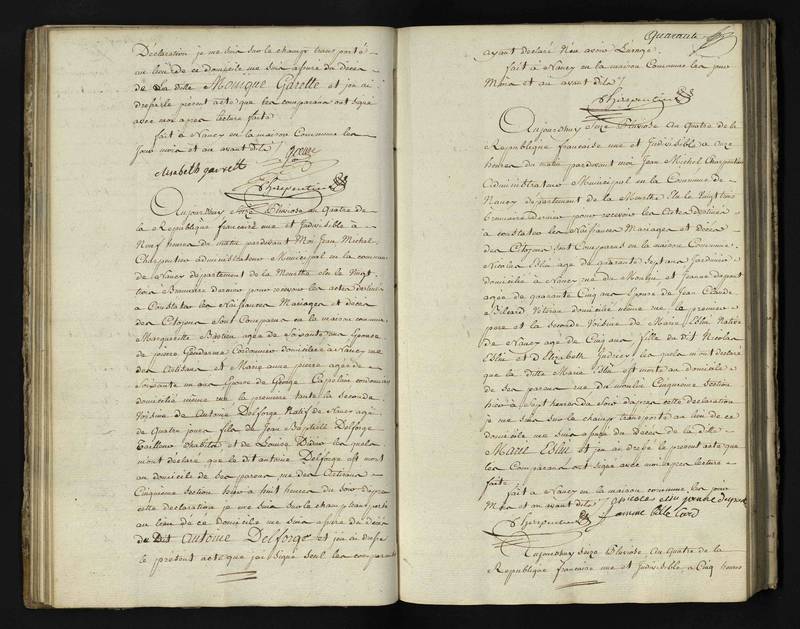 Déclaration je me suis sur le champ transporté
au lieu de ce domicile me suis assuré du décès
de La ditte Monique Garette et j'en ai
dressé le present acte que les comparans ont signé
avec moi apres lecture faite
fait à Nancy en la maison Commune les
jour mois et an avant dits
elisabeth garrett
Charpentier
Aujourdhuy Seize Pluviose au Quatre de
la Republique francaise une et Indivisible à
Neuf heures du matin pardevant Moi Jean Michel
Charpentier administrateur Municipal en la commune
de Nancy departement de la Meurthe élu le Vingt
trois Brumaire dernier pour recevoir les actes destinés
à Constater les Naissances Mariages et décès
des Citoyens Sont Comparus en la maison commune
Marguerite agée de Soixante ans Epouse
de pierre Gendarme Cordonnier domiciliée à Nancy rue
des Artisans et Marie anne pierre agée de
Soixante un ans Epouse de George cordonnier
domicilié même rue la premiere tante la seconde
Voisine de Antoine Delforge Natif de Nancy agé
de Quatre jours fils de Jean Baptiste Delforge
Tailleur d'habits et de Louise Didier les quels
m'ont déclaré que le dit antoine Delforge est mort
au domicile de ses parens rue des Artisans
Cinquieme Section hier à huit heures du Soir d'apres
cette declaration je me suis sur le champ transporté
au lieu de ce domicile me suis assuré du décès
du Dit Antoine Delforge et j'en ai dressé
le present acte que j'ai signé seul les comparants
Quarante
ayant declaré n'en avoir l'usage.
fait à Nancy en la maison Commune les jour
Mois et an avant dits
Charpentier
Aujourdhuy Seize Pluviose au Quatre de la
Republique francaise une et Indivisible à onze
heures du matin pardevant moi Jean Michel Charpentier
administrateur Municipal en la Commune de
Nancy departement de la Meurthe élu le Vingt trois
Brumaire dernier pour recevoir les Actes destinés
à constater les Naissances Mariages et décès
des Citoyens Sont Comparus en la maison Commune
Nicolas Eslié agé de quarante Sept ans Jardinier
domicilié à Nancy rue du Moulin et Jeanne
agée de quarante Cinq ans Epouse de Jean Claude
Veteran domicilié même rue le premier
pere et la seconde Voisine de Marie Eslié Native
de Nancy agée de Cinq ans fille du dit Nicolas
Eslié et d'Elizabeth les quels m'ont declaré
que la ditte Marie Eslié est morte au domicile
de ses parens rue du moulin Cinquieme Section
hier à Sept heures du Soir d'apres cette declaration
je me suis sur le champ transporté au lieu de ce
domicile me suis assuré du décès de la ditte
Marie Eslié et j'en ai dressé le present acte que
les Comparans ont signé avec moi apres lecture
faite
fait à Nancy en la maison commune les jour
Mois et an avant dits
Charpentier
Aujourdhuy Seize Pluviose au Quatre de la
Republique francaise une et Indivisible à Cinq heures